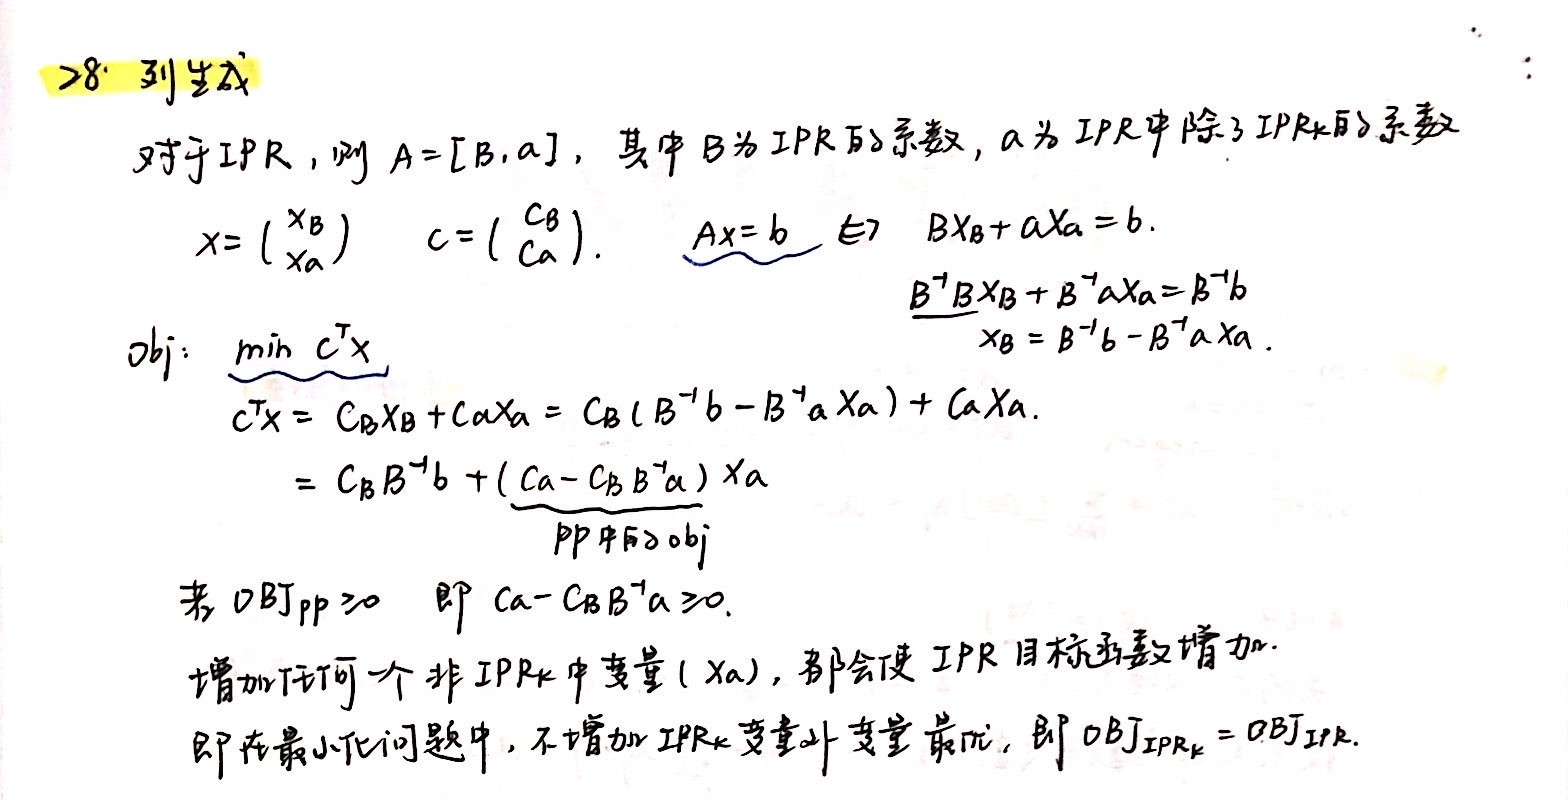 28. 列生成
对于IPR,则 A=[B,a], 其中 B为 IPR的系数, a为 IPR中除了IPRₖ的系数
x=(x_B x_a) c=(c_B c_a). Ax=b ⇔ Bx_B+ax_a=b.
B⁻¹Bx_B+B⁻¹ax_a=B⁻¹b
x_B=B⁻¹b-B⁻¹ax_a.
Obj: min cᵀx
cᵀx= c_Bx_B+c_ax_a = c_B(B⁻¹b-B⁻¹ax_a)+c_ax_a.
= c_BB⁻¹b+(c_a-c_BB⁻¹a)x_a
PP中的obj
若 OBJ_PP≥0 即 c_a-c_BB⁻¹a≥0.
增加任何一个非IPRₖ中变量(x_a),都会使 IPR目标函数增加.
即在最小化问题中,不增加 IPRₖ变量外变量最优,即 OBJ_IPRₖ = OBJ_IPR.